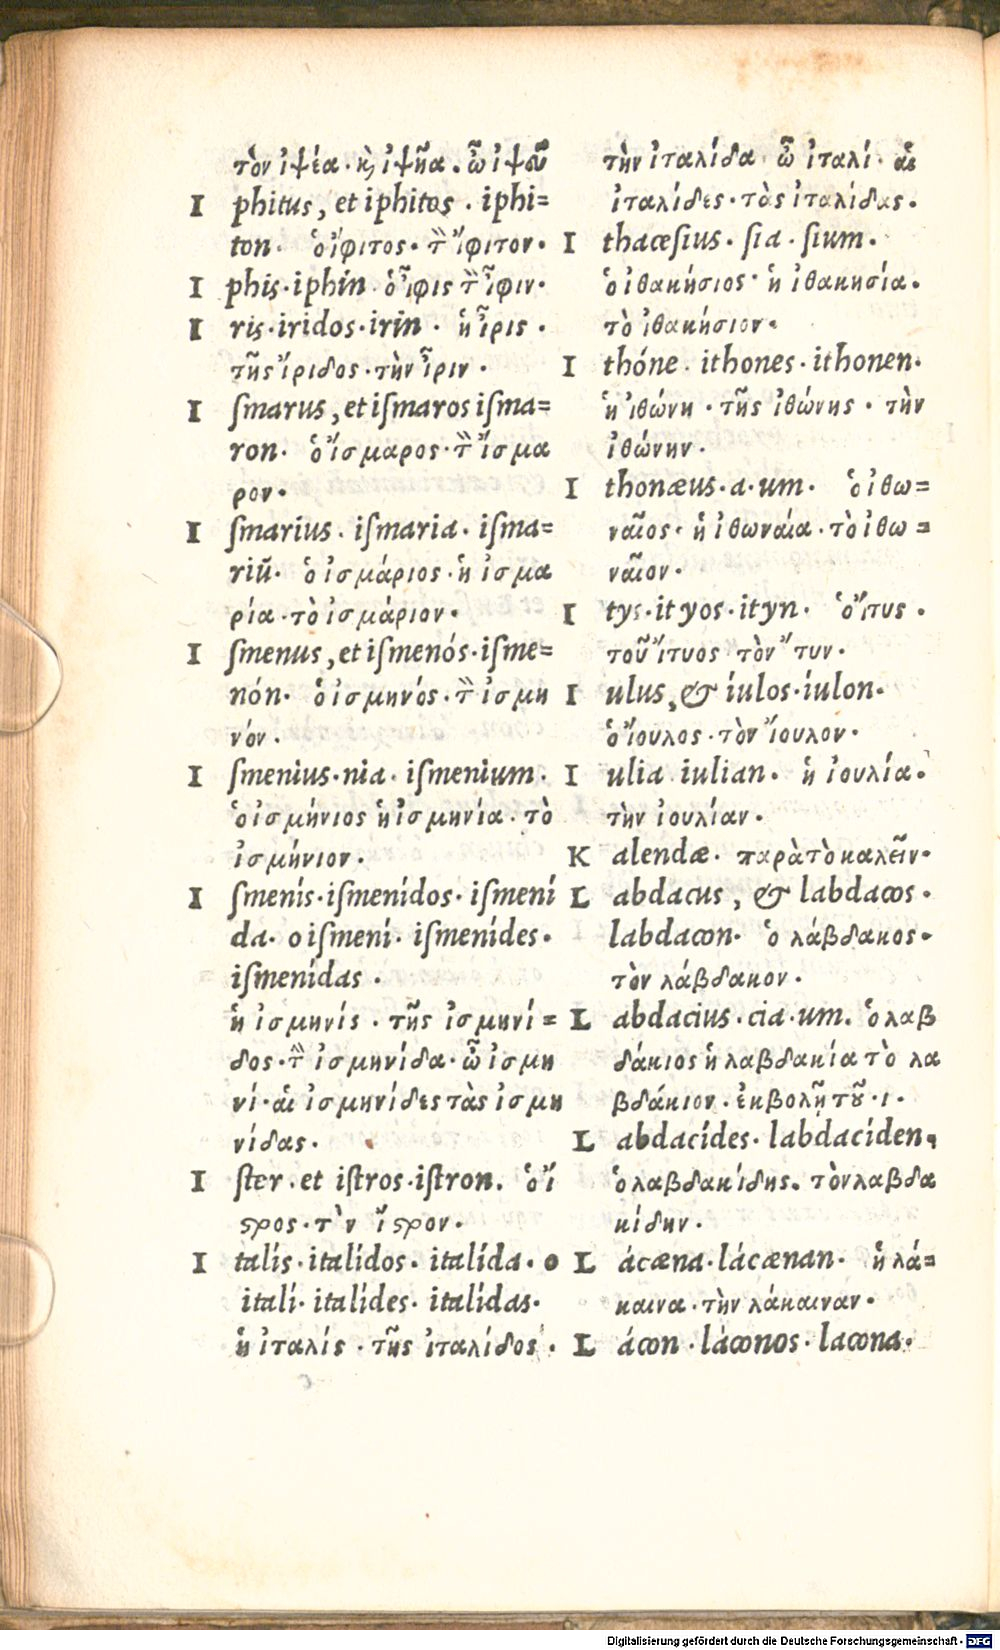 τὸν ἰψέα · κὶ ἰψῆα . ὦ ἰψοῦ
I phitus, et iphitos . iphi=
ton · ὁ ἴφιτος · τ̀ ἴφιτον ·
I phis · iphin ὁ ἶφις τ̀ ἶφιν ·
I ris · iridos · irin · ἡ ἶρις .
τῆς ἴριδος · τὴν ἶριν ·
I ſmarus, et iſmaros iſma=
ron · ὁ ἴσμαρος · τ̀ ἴσμα
ρον ·
I ſmarius . iſmaria . iſma=
riũ · ὁ ἰσμάριος · ἡ ἰσμα
ρία · τὸ ἰσμάριον ·
I ſmenus, et iſmenós · iſme=
nón · ὁ ἰσμηνός · τ̀ ἰσμη
νόν .
I ſmenius · nia · iſmenium ·
ὁ ἰσμήνιος ἡ ἰσμηνία . τὸ
ἰσμήνιον .
I ſmenís · iſmenídos · iſmení
da · o iſmení · iſmenídes ·
iſmenídas .
ἡ ἰσμηνίς . τῆς ἰσμηνί =
δος · τ̀ ἰσμηνίδα · ὦ ἰσμη
νί · αἱ ἰσμηνίδες τὰς ἰσμη
νίδας .
I ſter . et iſtros · iſtron . ὁ ἴ
ϛρος · τ ̀ν ἴϛρον .
I talís · italídos . italída . o
italí · italídes · italídas ·
ἡ ἰταλίς . τῆς ἰταλίδος .
τὴν ἰταλίδα ὦ ἰταλί · αἱ
ἰταλίδες · τὰς ἰταλίδας .
I thacæſius · ſia · ſium .
ὁ ἰθακήσιος · ἡ ἰθακησία .
τὸ ἰθακήσιον .
I thóne . ithones · ithonen .
ἡ ἰθώνη · τῆς ἰθώνης · τὴν
ἰθώνην .
I thonæus · a · um · ὁ ἰθω=
ναῖος · ἡ ἰθωναία · τὸ ἰθω =
ναῖον .
I tys · ityos · ityn · ὁ ἴτυς .
τοῦ ἴτυος τὸν ῎τυν .
I ulus, & íulos · íulon ·
ὁ ἴουλος · τὸν ἴουλον ·
I ulia iulian · ἡ ἰουλία .
τὴν ἰουλίαν .
K alendæ . παρὰ τὸ καλεῖν ·
L abdacus, & labdacos .
labdacon · ὁ λάβδακος ·
τὸν λάβδακον .
L abdacius · cia · um . ὁ λαβ
δάκιος ἡ λαβδακία τὸ λα
βδάκιον . ἐκβολῇ τοῦ · ι .
L abdacídes · labdacíden ,
ὁ λαβδακίδης . τὸν λαβδα
κίδην .
L ácæna · lácænan · ἡ λά=
καινα · τὴν λάκαιναν .
L ácon · láconos · lacona ·
Digitalisierung gefördert durch die Deutsche Forschungsgemeinschaft - DFG